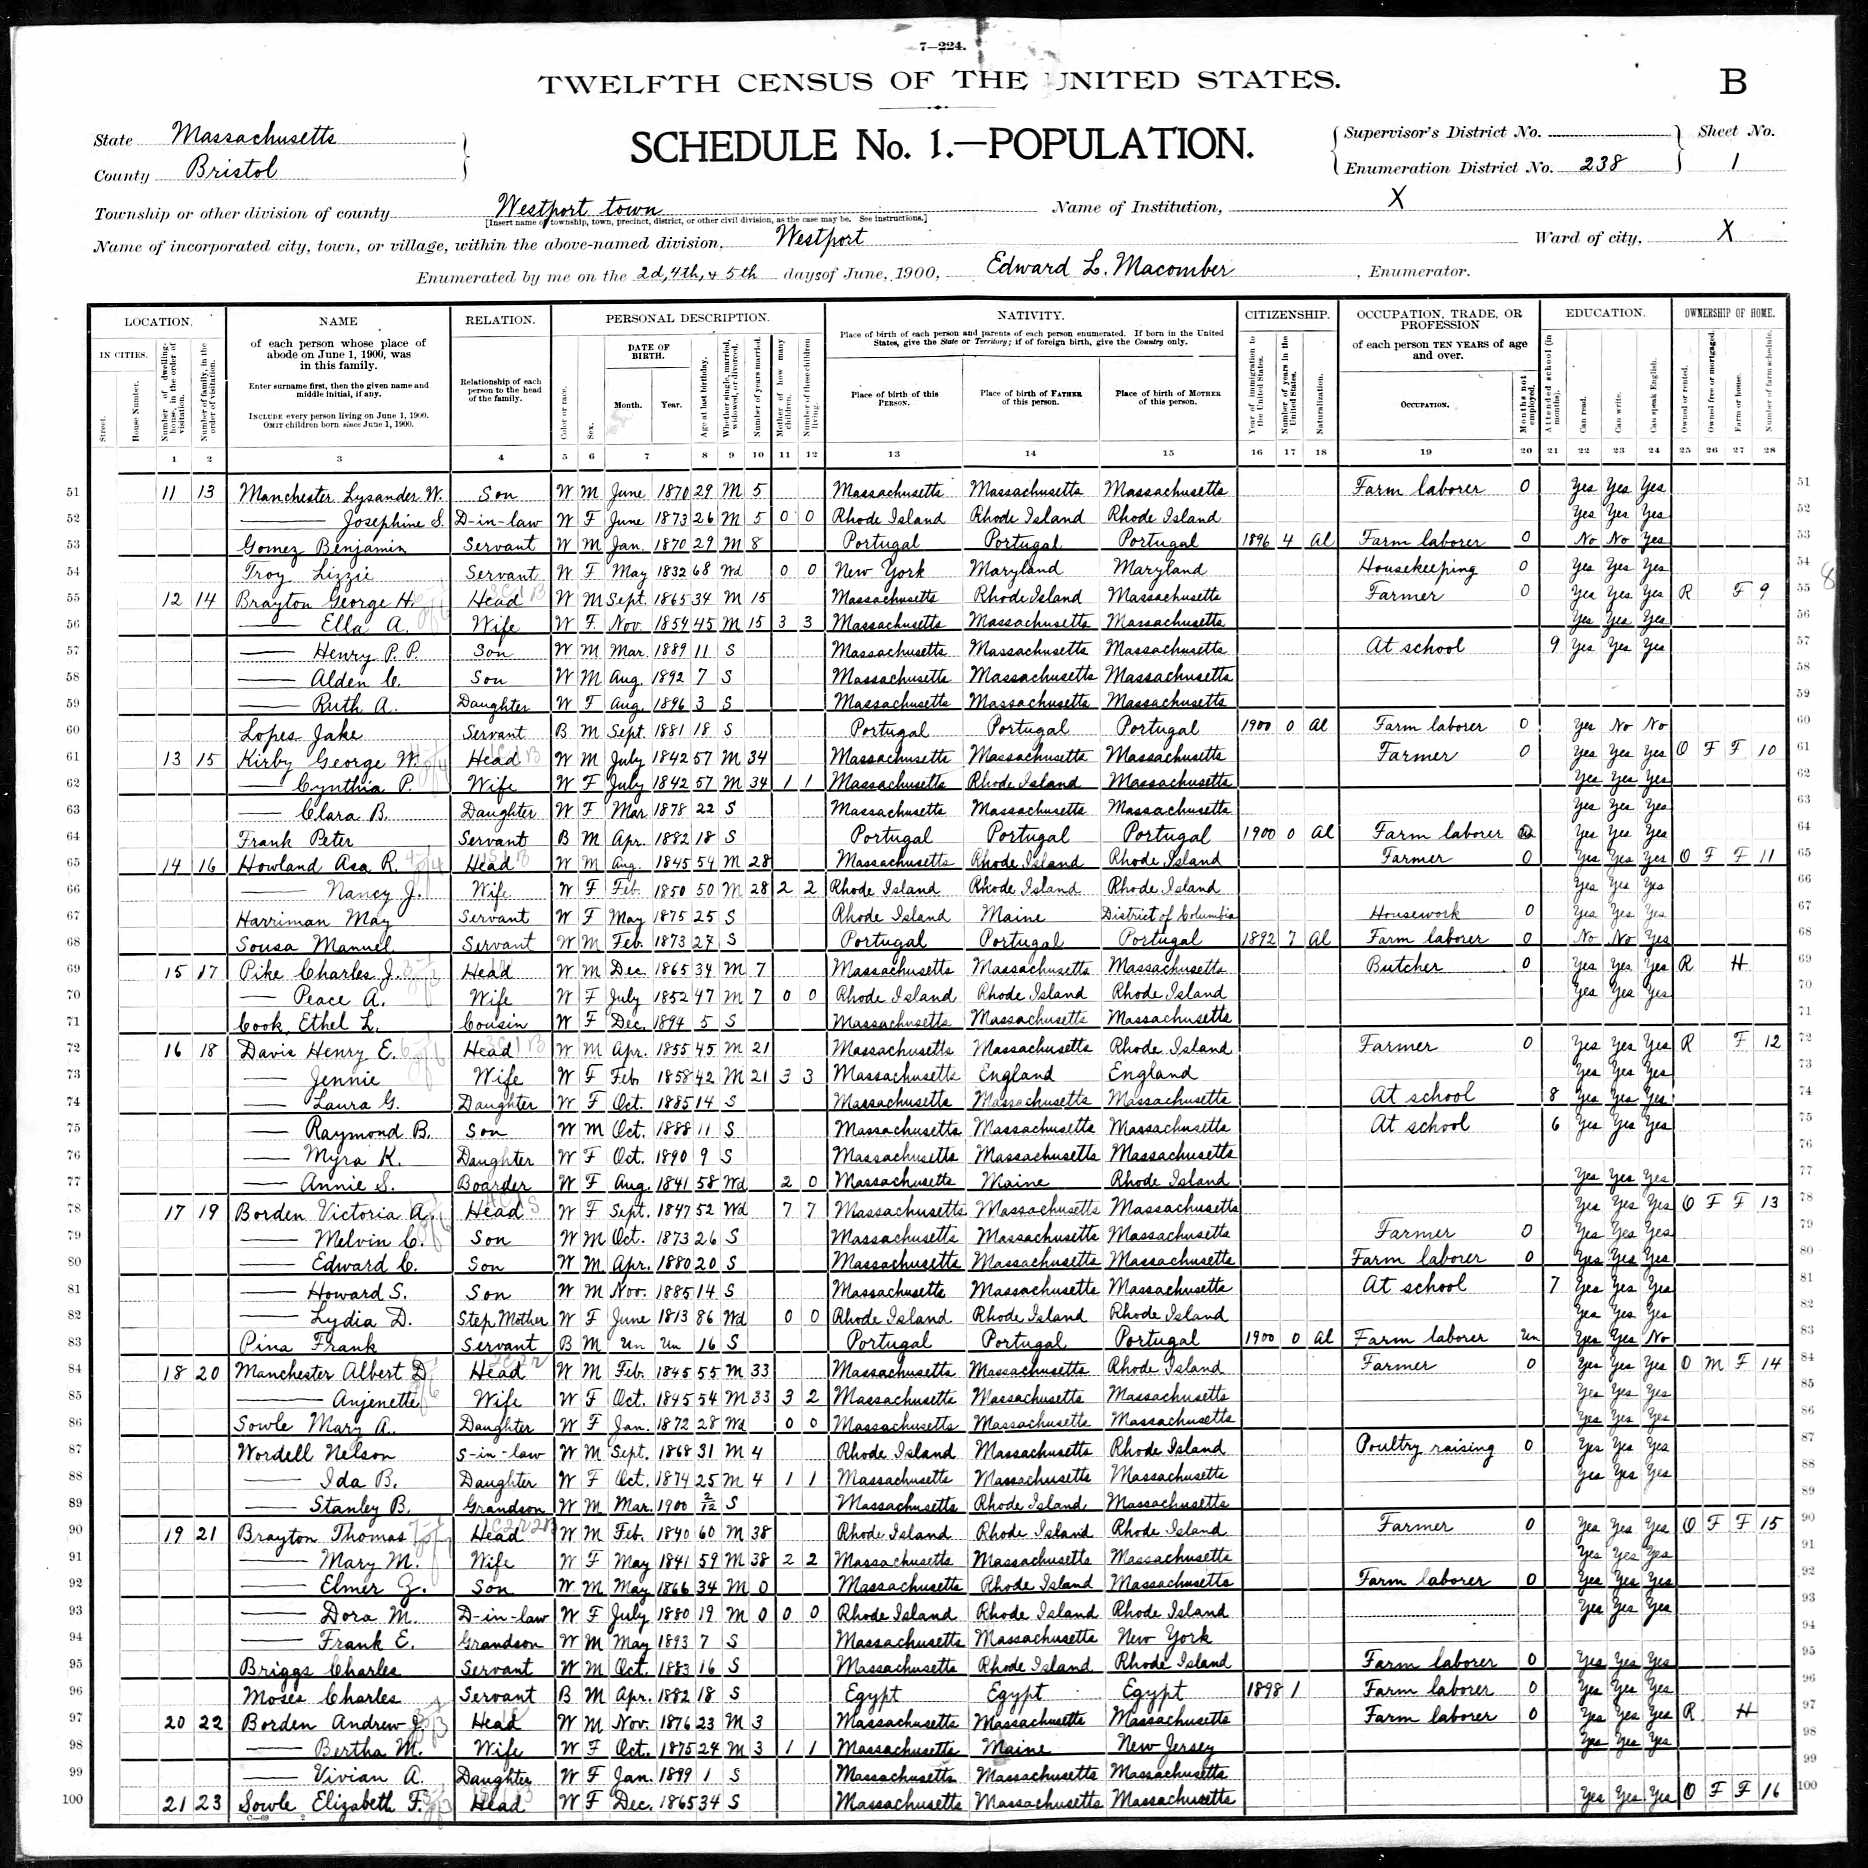 7—224.
TWELFTH CENSUS OF THE UNITED STATES.
B
State Massachusetts
County Bristol
SCHEDULE No. 1.—POPULATION.
Supervisor's District No.
Enumeration District No. 238
Sheet No.
1
Township or other division of county Westport town
[Insert name of township, town, precinct, district, or other civil division, as the case may be. See instructions.]
Name of Institution, X
Name of incorporated city, town, or village, within the above-named division, Westport
Ward of city, X
Enumerated by me on the 2d, 4th, & 5th days of June, 1900, Edward L. Macomber, Enumerator.
LOCATION. NAME RELATION. PERSONAL DESCRIPTION. NATIVITY. CITIZENSHIP. OCCUPATION, TRADE, OR PROFESSION EDUCATION. OWNERSHIP OF HOME.
IN CITIES. Street. House Number. Number of dwelling-house, in the order of visitation. Number of family, in the order of visitation.
of each person whose place of abode on June 1, 1900, was in this family.
Enter surname first, then the given name and middle initial, if any.
INCLUDE every person living on June 1, 1900. OMIT children born since June 1, 1900.
Relationship of each person to the head of the family.
Color or race. Sex. DATE OF BIRTH. Month. Year. Age at last birthday. Whether single, married, widowed, or divorced. Number of years married. Mother of how many children. Number of these children living.
Place of birth of each person and parents of each person enumerated. If born in the United States, give the State or Territory; if of foreign birth, give the Country only.
Place of birth of this PERSON. Place of birth of FATHER of this person. Place of birth of MOTHER of this person.
Year of immigration to the United States. Number of years in the United States. Naturalization.
of each person TEN YEARS of age and over.
OCCUPATION. Months not employed.
Attended school (in months). Can read. Can write. Can speak English.
Owned or rented. Owned free or mortgaged. Farm or house. Number of farm schedule.
1 2 3 4 5 6 7 8 9 10 11 12 13 14 15 16 17 18 19 20 21 22 23 24 25 26 27 28
51 11 13 Manchester Lysander W. Son W M June 1870 29 M 5 Massachusetts Massachusetts Massachusetts Farm laborer 0 Yes Yes Yes 51
52 — Josephine S. D-in-law W F June 1873 26 M 5 0 0 Rhode Island Rhode Island Rhode Island Yes Yes Yes 52
53 Gomez Benjamin Servant W M Jan. 1870 29 M 8 Portugal Portugal Portugal 1896 4 Al Farm laborer 0 No No Yes 53
54 Troy Lizzie Servant W F May 1832 68 Wd 0 0 New York Maryland Maryland Housekeeping 0 Yes Yes Yes 54
55 12 14 Brayton George H. Head W M Sept. 1865 34 M 15 Massachusetts Rhode Island Massachusetts Farmer 0 Yes Yes Yes R F 9 55
56 — Ella A. Wife W F Nov. 1854 45 M 15 3 3 Massachusetts Massachusetts Massachusetts Yes Yes Yes 56
57 — Henry P. P. Son W M Mar. 1889 11 S Massachusetts Massachusetts Massachusetts At school 9 Yes Yes Yes 57
58 — Alden C. Son W M Aug. 1892 7 S Massachusetts Massachusetts Massachusetts 58
59 — Ruth A. Daughter W F Aug. 1896 3 S Massachusetts Massachusetts Massachusetts 59
60 Lopes Jake Servant B M Sept. 1881 18 S Portugal Portugal Portugal 1900 0 Al Farm laborer 0 Yes No No 60
61 13 15 Kirby George W. Head W M July 1842 57 M 34 Massachusetts Massachusetts Massachusetts Farmer 0 Yes Yes Yes O F F 10 61
62 — Cynthia P. Wife W F July 1842 57 M 34 1 1 Massachusetts Rhode Island Massachusetts Yes Yes Yes 62
63 — Clara B. Daughter W F Mar 1878 22 S Massachusetts Massachusetts Massachusetts Yes Yes Yes 63
64 Frank Peter Servant B M Apr. 1882 18 S Portugal Portugal Portugal 1900 0 Al Farm laborer Yes Yes Yes 64
65 14 16 Howland Asa R. Head W M Aug. 1845 54 M 28 Massachusetts Rhode Island Rhode Island Farmer 0 Yes Yes Yes O F F 11 65
66 — Nancy J. Wife W F Feb. 1850 50 M 28 2 2 Rhode Island Rhode Island Rhode Island Yes Yes Yes 66
67 Harriman May Servant W F May 1875 25 S Rhode Island Maine District of Columbia Housework 0 Yes Yes Yes 67
68 Sousa Manuel Servant W M Feb. 1873 27 S Portugal Portugal Portugal 1892 7 Al Farm laborer 0 No No Yes 68
69 15 17 Pike Charles J. Head W M Dec. 1865 34 M 7 Massachusetts Massachusetts Massachusetts Butcher 0 Yes Yes Yes R H 69
70 — Peace A. Wife W F July 1852 47 M 7 0 0 Rhode Island Rhode Island Rhode Island Yes Yes Yes 70
71 Cook Ethel L. Cousin W F Dec. 1894 5 S Massachusetts Massachusetts Massachusetts 71
72 16 18 Davis Henry E. Head W M Apr. 1855 45 M 21 Massachusetts Massachusetts Rhode Island Farmer 0 Yes Yes Yes R F 12 72
73 — Jennie Wife W F Feb. 1858 42 M 21 3 3 Massachusetts England England Yes Yes Yes 73
74 — Laura G. Daughter W F Oct. 1885 14 S Massachusetts Massachusetts Massachusetts At school 8 Yes Yes Yes 74
75 — Raymond B. Son W M Oct. 1888 11 S Massachusetts Massachusetts Massachusetts At school 6 Yes Yes Yes 75
76 — Myra K. Daughter W F Oct. 1890 9 S Massachusetts Massachusetts Massachusetts 76
77 — Annie S. Boarder W F Aug. 1841 58 Wd 2 0 Massachusetts Maine Rhode Island Yes Yes Yes 77
78 17 19 Borden Victoria A. Head W F Sept. 1847 52 Wd 7 7 Massachusetts Massachusetts Massachusetts Yes Yes Yes O F F 13 78
79 — Melvin C. Son W M Oct. 1873 26 S Massachusetts Massachusetts Massachusetts Farmer 0 Yes Yes Yes 79
80 — Edward C. Son W M Apr. 1880 20 S Massachusetts Massachusetts Massachusetts Farm laborer 0 Yes Yes Yes 80
81 — Howard S. Son W M Nov. 1885 14 S Massachusetts Massachusetts Massachusetts At school 7 Yes Yes Yes 81
82 — Lydia D. Step Mother W F June 1813 86 Wd 0 0 Rhode Island Rhode Island Rhode Island Yes Yes Yes 82
83 Pina Frank Servant B M Un Un 16 S Portugal Portugal Portugal 1900 0 Al Farm laborer Un Yes Yes No 83
84 18 20 Manchester Albert D. Head W M Feb. 1845 55 M 33 Massachusetts Massachusetts Rhode Island Farmer 0 Yes Yes Yes O M F 14 84
85 — Anjenette Wife W F Oct. 1845 54 M 33 3 2 Massachusetts Massachusetts Massachusetts Yes Yes Yes 85
86 Sowle Mary A. Daughter W F Jan. 1872 28 Wd 0 0 Massachusetts Massachusetts Massachusetts Yes Yes Yes 86
87 Wordell Nelson S-in-law W M Sept. 1868 31 M 4 Rhode Island Massachusetts Rhode Island Poultry raising 0 Yes Yes Yes 87
88 — Ida B. Daughter W F Oct. 1874 25 M 4 1 1 Massachusetts Massachusetts Massachusetts Yes Yes Yes 88
89 — Stanley B. Grandson W M Mar. 1900 2/12 S Massachusetts Rhode Island Massachusetts 89
90 19 21 Brayton Thomas Head W M Feb. 1840 60 M 38 Rhode Island Rhode Island Rhode Island Farmer 0 Yes Yes Yes O F F 15 90
91 — Mary M. Wife W F May 1841 59 M 38 2 2 Massachusetts Massachusetts Massachusetts Yes Yes Yes 91
92 — Elmer G. Son W M May 1866 34 M 0 Massachusetts Rhode Island Massachusetts Farm laborer 0 Yes Yes Yes 92
93 — Dora M. D-in-law W F July 1880 19 M 0 0 0 Rhode Island Rhode Island Rhode Island Yes Yes Yes 93
94 — Frank E. Grandson W M May 1893 7 S Massachusetts Massachusetts New York 94
95 Briggs Charles Servant W M Oct. 1883 16 S Massachusetts Rhode Island Rhode Island Farm laborer 0 Yes Yes Yes 95
96 Moses Charles Servant B M Apr. 1882 18 S Egypt Egypt Egypt 1898 1 Farm laborer 0 Yes Yes Yes 96
97 20 22 Borden Andrew J. Head W M Nov. 1876 23 M 3 Massachusetts Massachusetts Massachusetts Farm laborer 0 Yes Yes Yes R H 97
98 — Bertha M. Wife W F Oct. 1875 24 M 3 1 1 Massachusetts Maine New Jersey Yes Yes Yes 98
99 — Vivian A. Daughter W F Jan. 1899 1 S Massachusetts Massachusetts Massachusetts 99
100 21 23 Sowle Elizabeth F. Head W F Dec. 1865 34 S Massachusetts Massachusetts Massachusetts Yes Yes Yes O F F 16 100